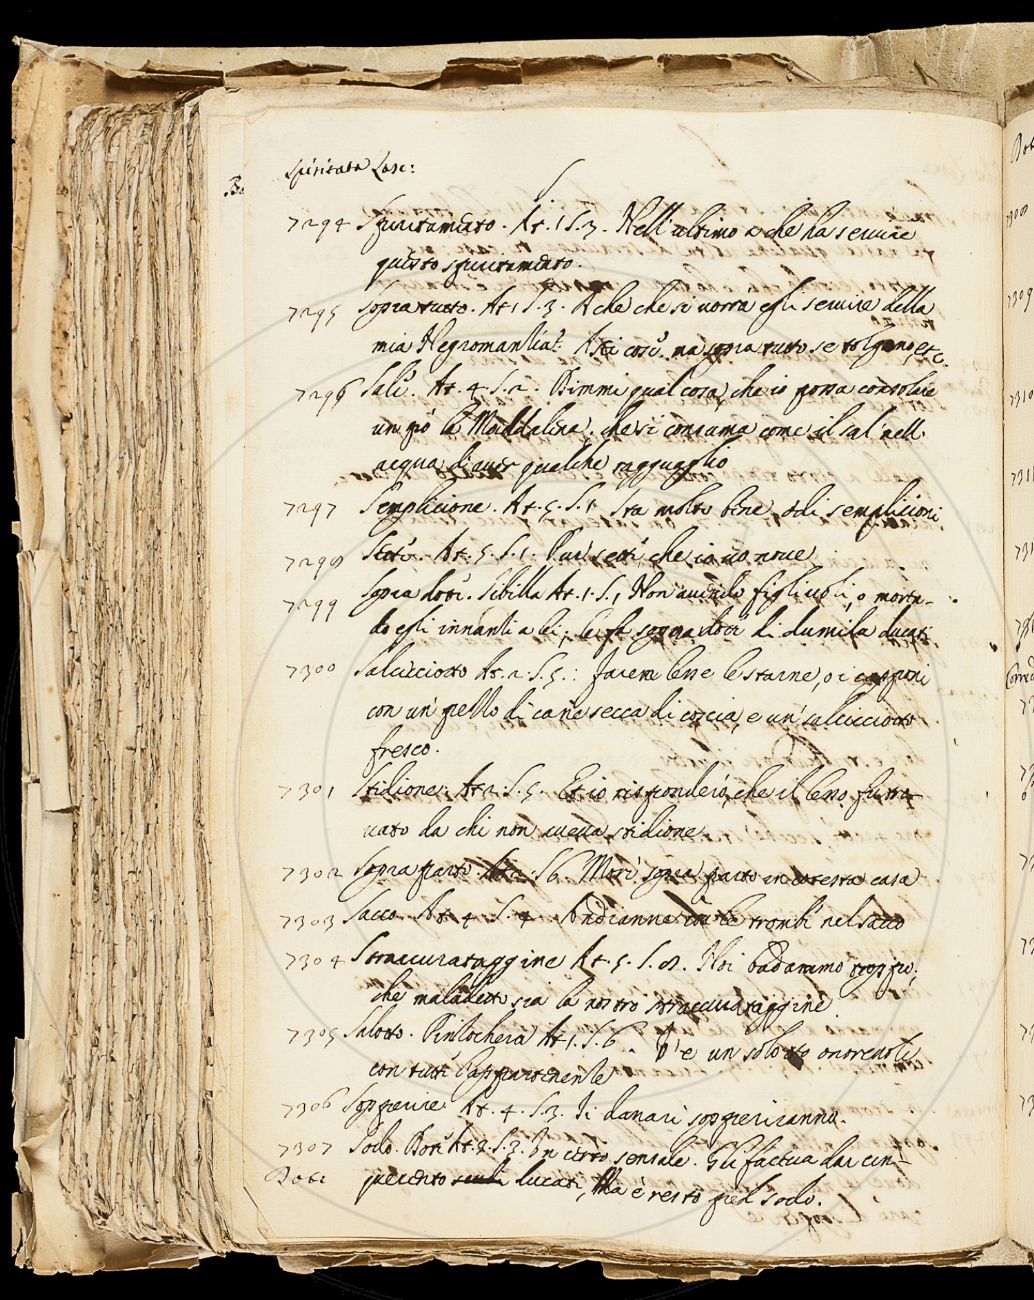 Spiritata Lasc:
S
7294 Spiritamento. At. 1 S. 3. Nell'ultimo a che ha servire
questo spiritamento.
7295 Sopra tutto. At 1 S. 3. A che che si vorra egli servire della
mia Negromanzia? così. ma sopra tutto se tolgono, etc.
7296 Sale. At. 4. S. 2. Dimmi qual cosa, che io possa consolare
un pò la Maddalena, che si consuma come il sal nell'
acqua di aver qualche ragguaglio
7297 Semplicione. At. 5. S. 1 Sta molto bene, o di semplicioni
7298 Stetti. At. 5. S. 1. che io
7299 Sopra doti. Sibilla At. 1. S. 1 Non avendo figlivoli, o morta-
do egli innanti a lei, le fe sopra doti di dumila ducati
7300 Salcicciotto At. 2. S. 5.: le starne, o i capponi
con un' pezzo di carne secca di coscia, e un' salcicciotto
fresco.
7301 Stidione At 2. S. 5. Et io risponderò, che il lesso fu tro-
vato da chi non aveva stidione
7302 Sopra parto At 2. S 6. Morì sopra parto in cotesta casa
7303 Sacco. At 4. S. 4. Andianne con le trombe nel sacco
7304 Straccurataggine At. 5. S. 8. Noi badammo troppo,
che maladetto sia la nostra straccurataggine.
7305 Salotto. Pinzochera At 1. S. 6. V'è un salotto onorevole
con tutte l'appartenenze
7306 Sopperire At. 4. S. 3. Ii danari sopperiranno.
7307 Sodo. At. 2. S. 3. Un certo sensale. Gli faceva dar cin-
Doti quecento ducati, Ma è resto piè sodo.